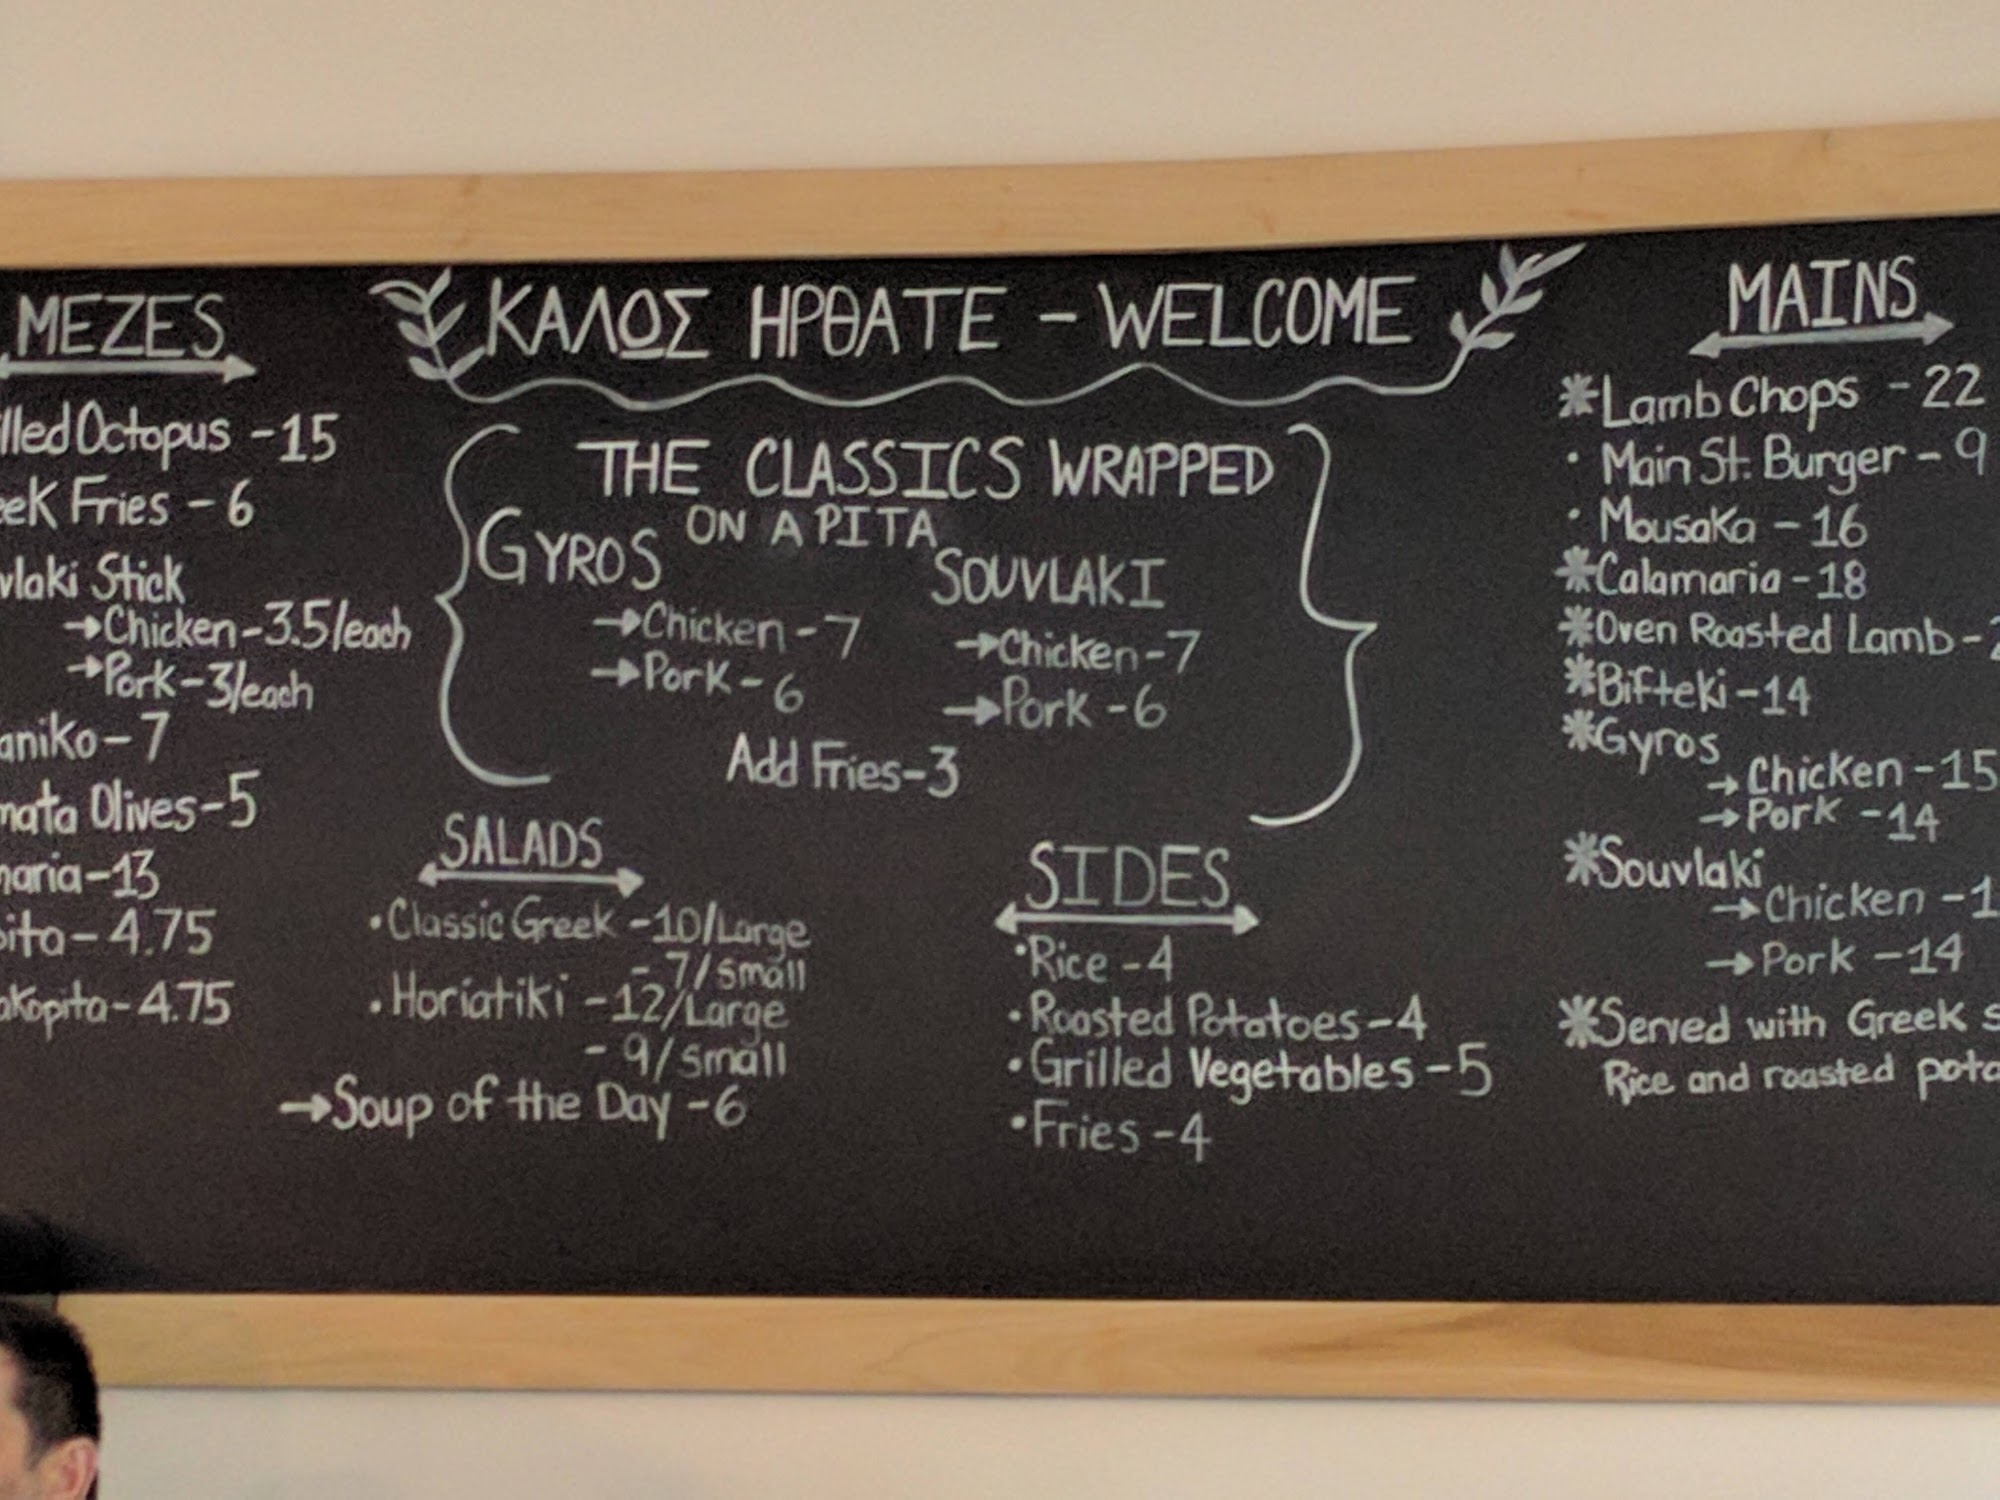 MEZES
lled Octopus - 15
eek Fries - 6
vlaki Stick
→Chicken - 3.5/each
→Pork - 3/each
aniko - 7
mata Olives - 5
maria - 13
pita - 4.75
akopita - 4.75
ΚΑΛΩΣ ΗΡΘΑΤΕ - WELCOME
THE CLASSICS WRAPPED
ON A PITA
GYROS
→Chicken - 7
→Pork - 6
SOUVLAKI
→Chicken - 7
→Pork - 6
Add Fries - 3
SALADS
• Classic Greek - 10/Large
- 7/Small
• Horiatiki - 12/Large
- 9/Small
→Soup of the Day - 6
SIDES
• Rice - 4
• Roasted Potatoes - 4
• Grilled Vegetables - 5
• Fries - 4
MAINS
* Lamb Chops - 22
• Main St. Burger - 9
• Mousaka - 16
* Calamaria - 18
* Oven Roasted Lamb -
* Bifteki - 14
* Gyros
→ Chicken - 15
→ Pork - 14
* Souvlaki
→ Chicken - 1
→ Pork - 14
* Served with Greek s
Rice and roasted pota